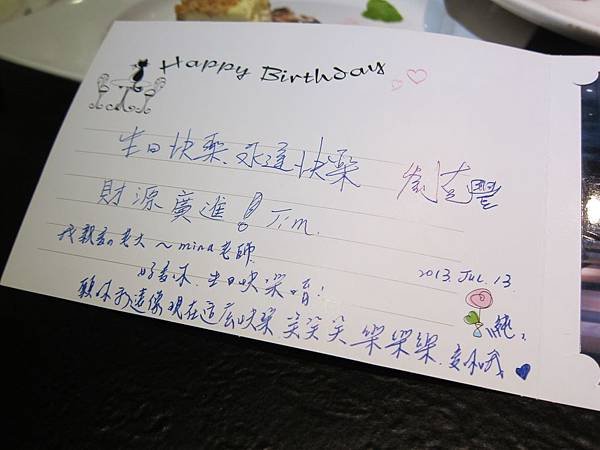 Happy Birthday
生日快樂、永遠快樂
財源廣進! Jim.
我敬愛的老大～mina老師
2013. Jul. 13
好香味 生日快樂唷!
願你永遠像現在這麼快樂 笑笑笑 樂樂樂 愛你哦
純